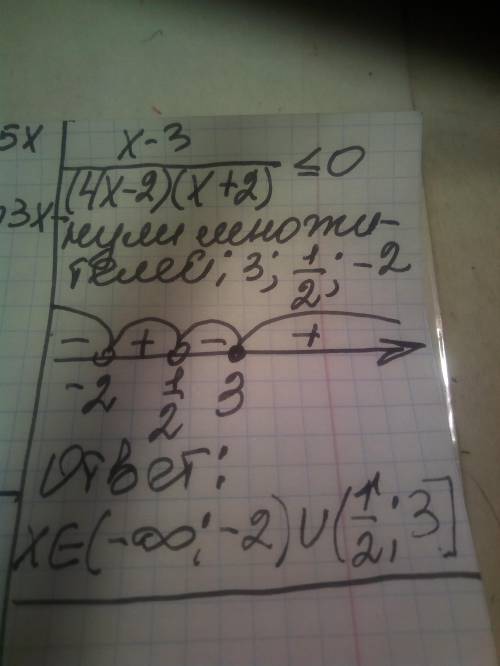 5x
x-3
(4x-2)(x+2) ≤0
03x-
нули множи-
телей: 3; 1/2; -2
- + - +
-2 1/2 3
Ответ:
x∈(-∞; -2)∪(1/2; 3]